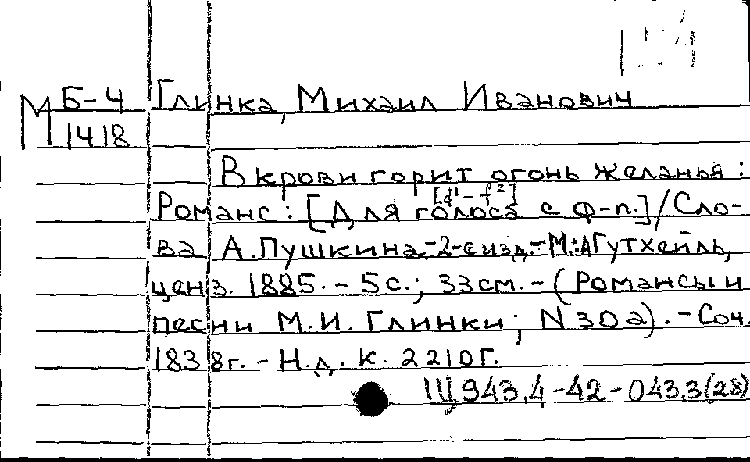 М Б-4 Глинка, Михаил Иванович
1418
В крови горит огонь желанья :
[d¹ - f²]
Романс : [Для голоса с ф-п.] / Сло-
ва А. Пушкина. - 2-е изд. - М.: А. Гутхейль,
ценз. 1885. - 5 с.; 33 см. - (Романсы и
песни М. И. Глинки; N 30а). - Соч.
1838 г. - Н. д. К. 2210 Г.
Щ 943.4-42-043.3(28)